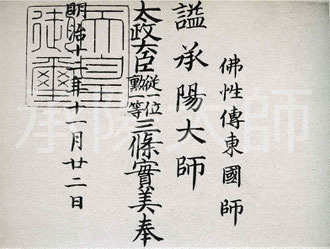 佛性傳東國師
諡承陽大師
太政大臣從一位勲一等三條實美奉
明治十二年十一月廿二日
天皇御璽
承陽大師